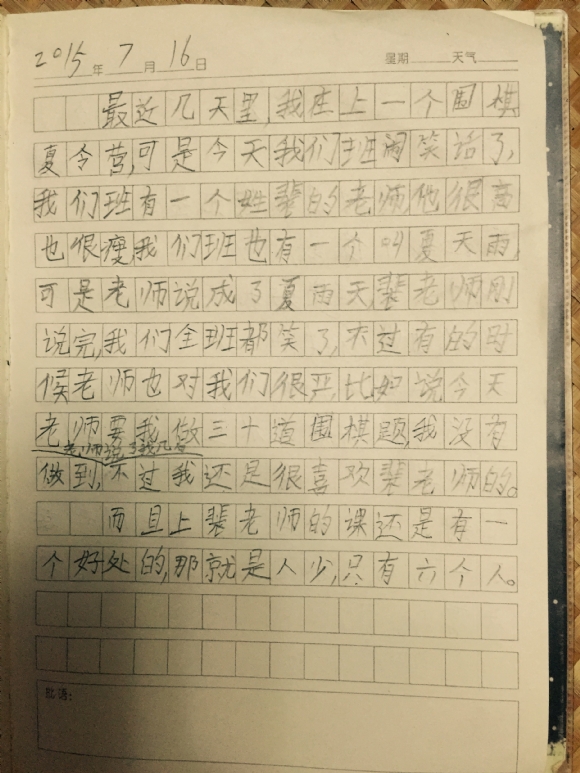 2015年7月16日 星期 天气
最近几天里,我在上一个围棋
夏令营,可是今天我们班闹笑话了,
我们班有一个姓裴的老师他很高
也很瘦,我们班也有一个叫夏天雨,
可是老师说成了夏雨天,裴老师刚
说完,我们全班都笑了,不过有的时
候老师也对我们很严,比如说今天
老师要我做三十道围棋题,我没有
老师说了我几句
做到,不过我还是很喜欢裴老师的。
而且上裴老师的课还是有一
个好处的,那就是人少,只有六个人。
批语: